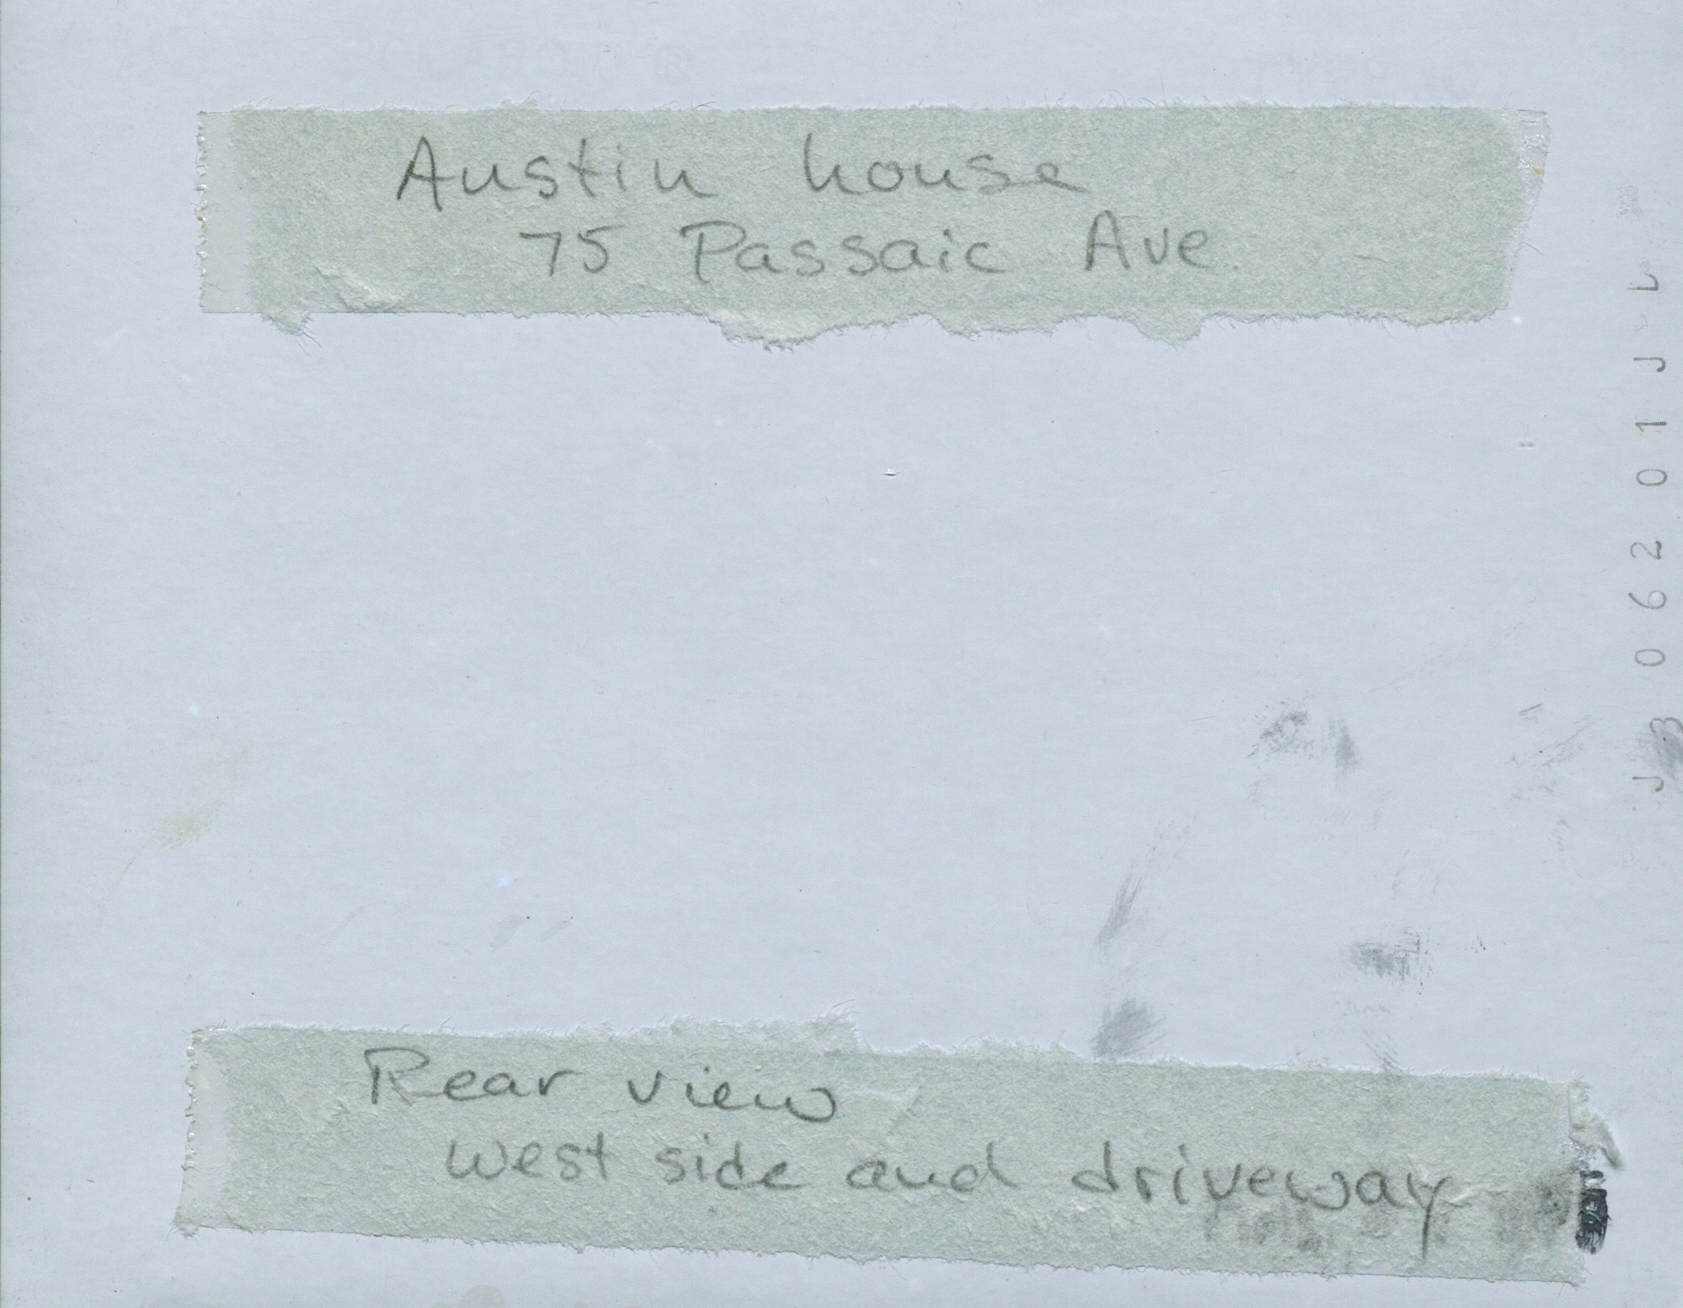 Austin house
75 Passaic Ave.
Rear view
west side and driveway